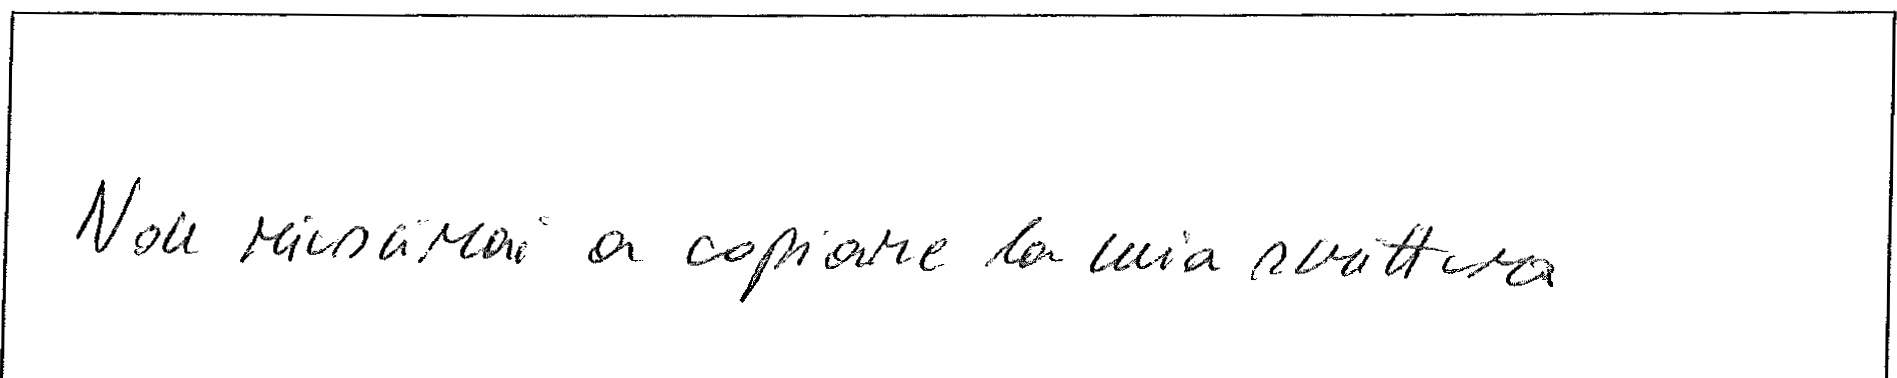 Non riuscirai a copiare la mia scrittura